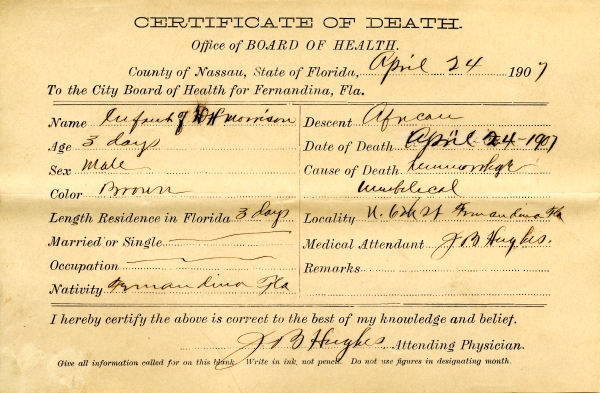 CERTIFICATE OF DEATH.
Office of BOARD OF HEALTH.
County of Nassau, State of Florida, April 24 1907
To the City Board of Health for Fernandina, Fla.
Name Infant of D H Morrison
Age 3 days
Sex Male
Color Brown
Length Residence in Florida 3 days
Married or Single
Occupation
Nativity Fernandina Fla
Descent African
Date of Death April 24-1907
Cause of Death hemmorhage
umblecal
Locality N. 6th St Fernandina Fla
Medical Attendant J B Hughes.
Remarks
I hereby certify the above is correct to the best of my knowledge and belief.
J B Hughes, Attending Physician.
Give all information called for on this blank. Write in ink, not pencil. Do not use figures in designating month.